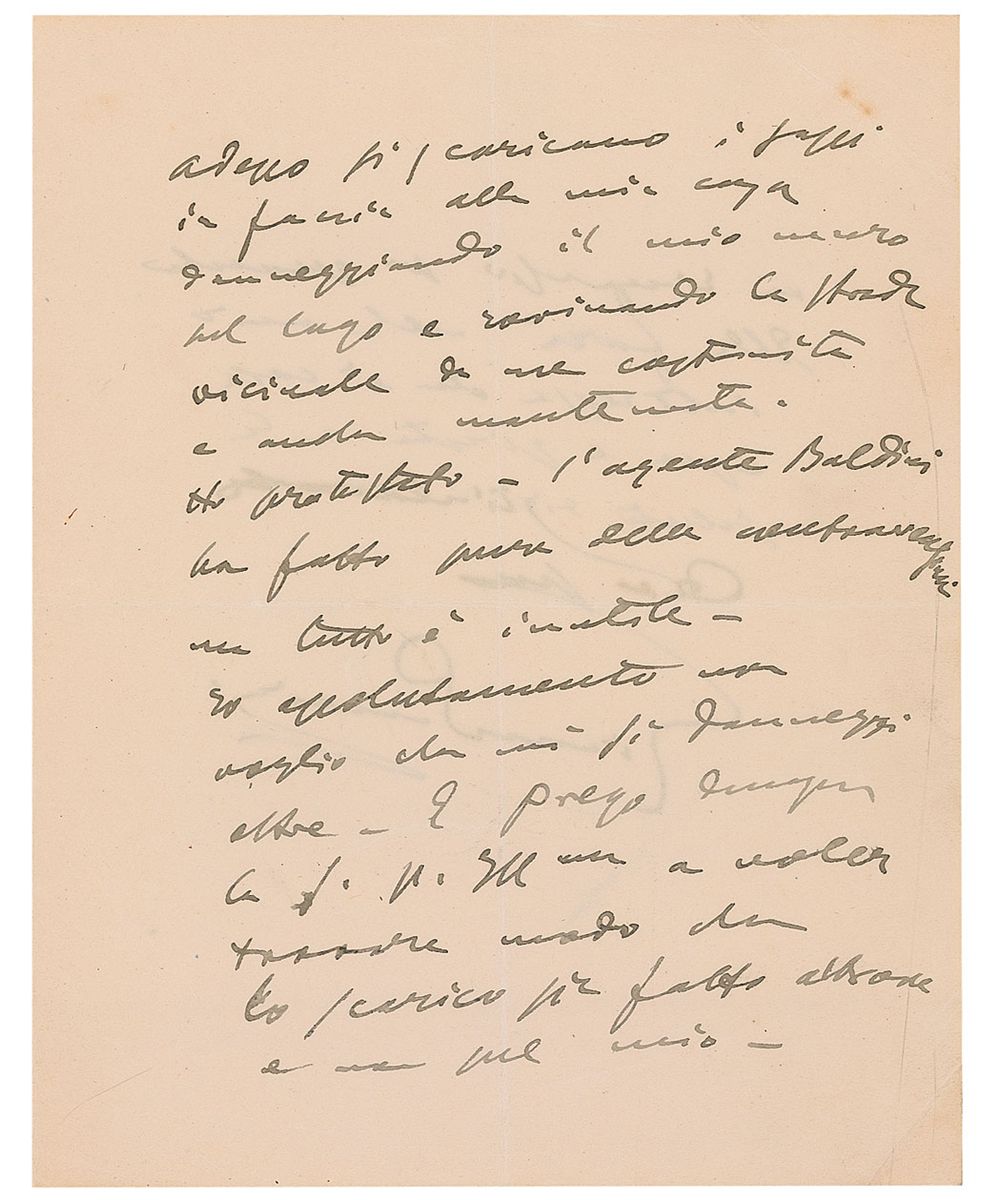 adesso si scaricano i sassi
in faccia alla mia casa
danneggiando il mio muro
sul lago e rovinando la strada
vicinale da me costruita
e anche mantenuta.
Ho protestato – l'agente Baldini
ha fatto pure delle contravvenzioni
ma tutto è inutile –
Io assolutamente non
voglio che mi si danneggi
oltre – E prego dunque
la S. V. Ill ma a voler
trovare modo che
lo scarico sia fatto altrove
e non sul mio –